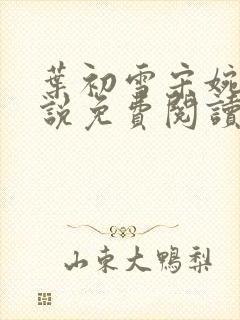 葉初雪宋婉
說免費閱讀
山東大鴨梨